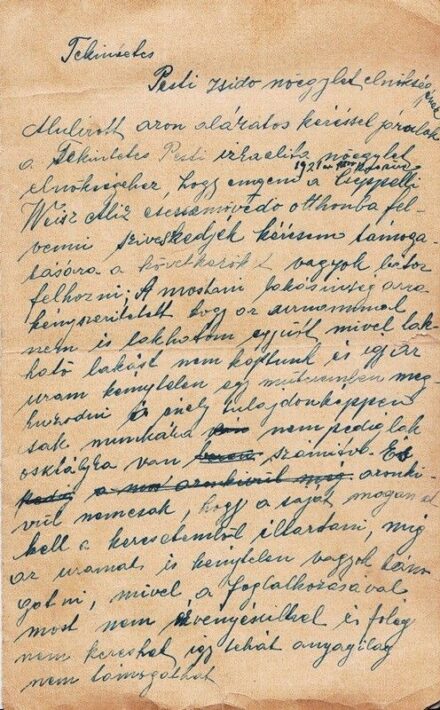 Tekintetes
Pesti izsido nőegylet elnökségének
Alulirott azon alázatos kéréssel járulok
a Tekintetes Pesti izraelita nőegylet
elnökségéhez, hogy engem a 1921
Weisz Aliz csecsemővédő otthonba fel-
venni sziveskedjék kérésem támoga-
tására a következőket vagyok bátor
felhozni; A mostani lakásinség arra
kényszeritetett hogy az urammal
nem is lakhatom együtt mivel lak-
ható lakást nem kaptunk és igy az
uram kénytelen egy műteremben meg
huzodni és mely tulajdonképpen
csak, munkára nem pedig lak
osztályra van számitva. És
azonki-
vül nemcsak, hogy a saját magam el
kell a keresetemből illartani, mig
az uramat is kénytelen vagyok támo
gatni, mivel, a foglalkozásával
most nem érvényesülhet és főleg
nem kereshet igy tehát anyagilag
nem támogathat